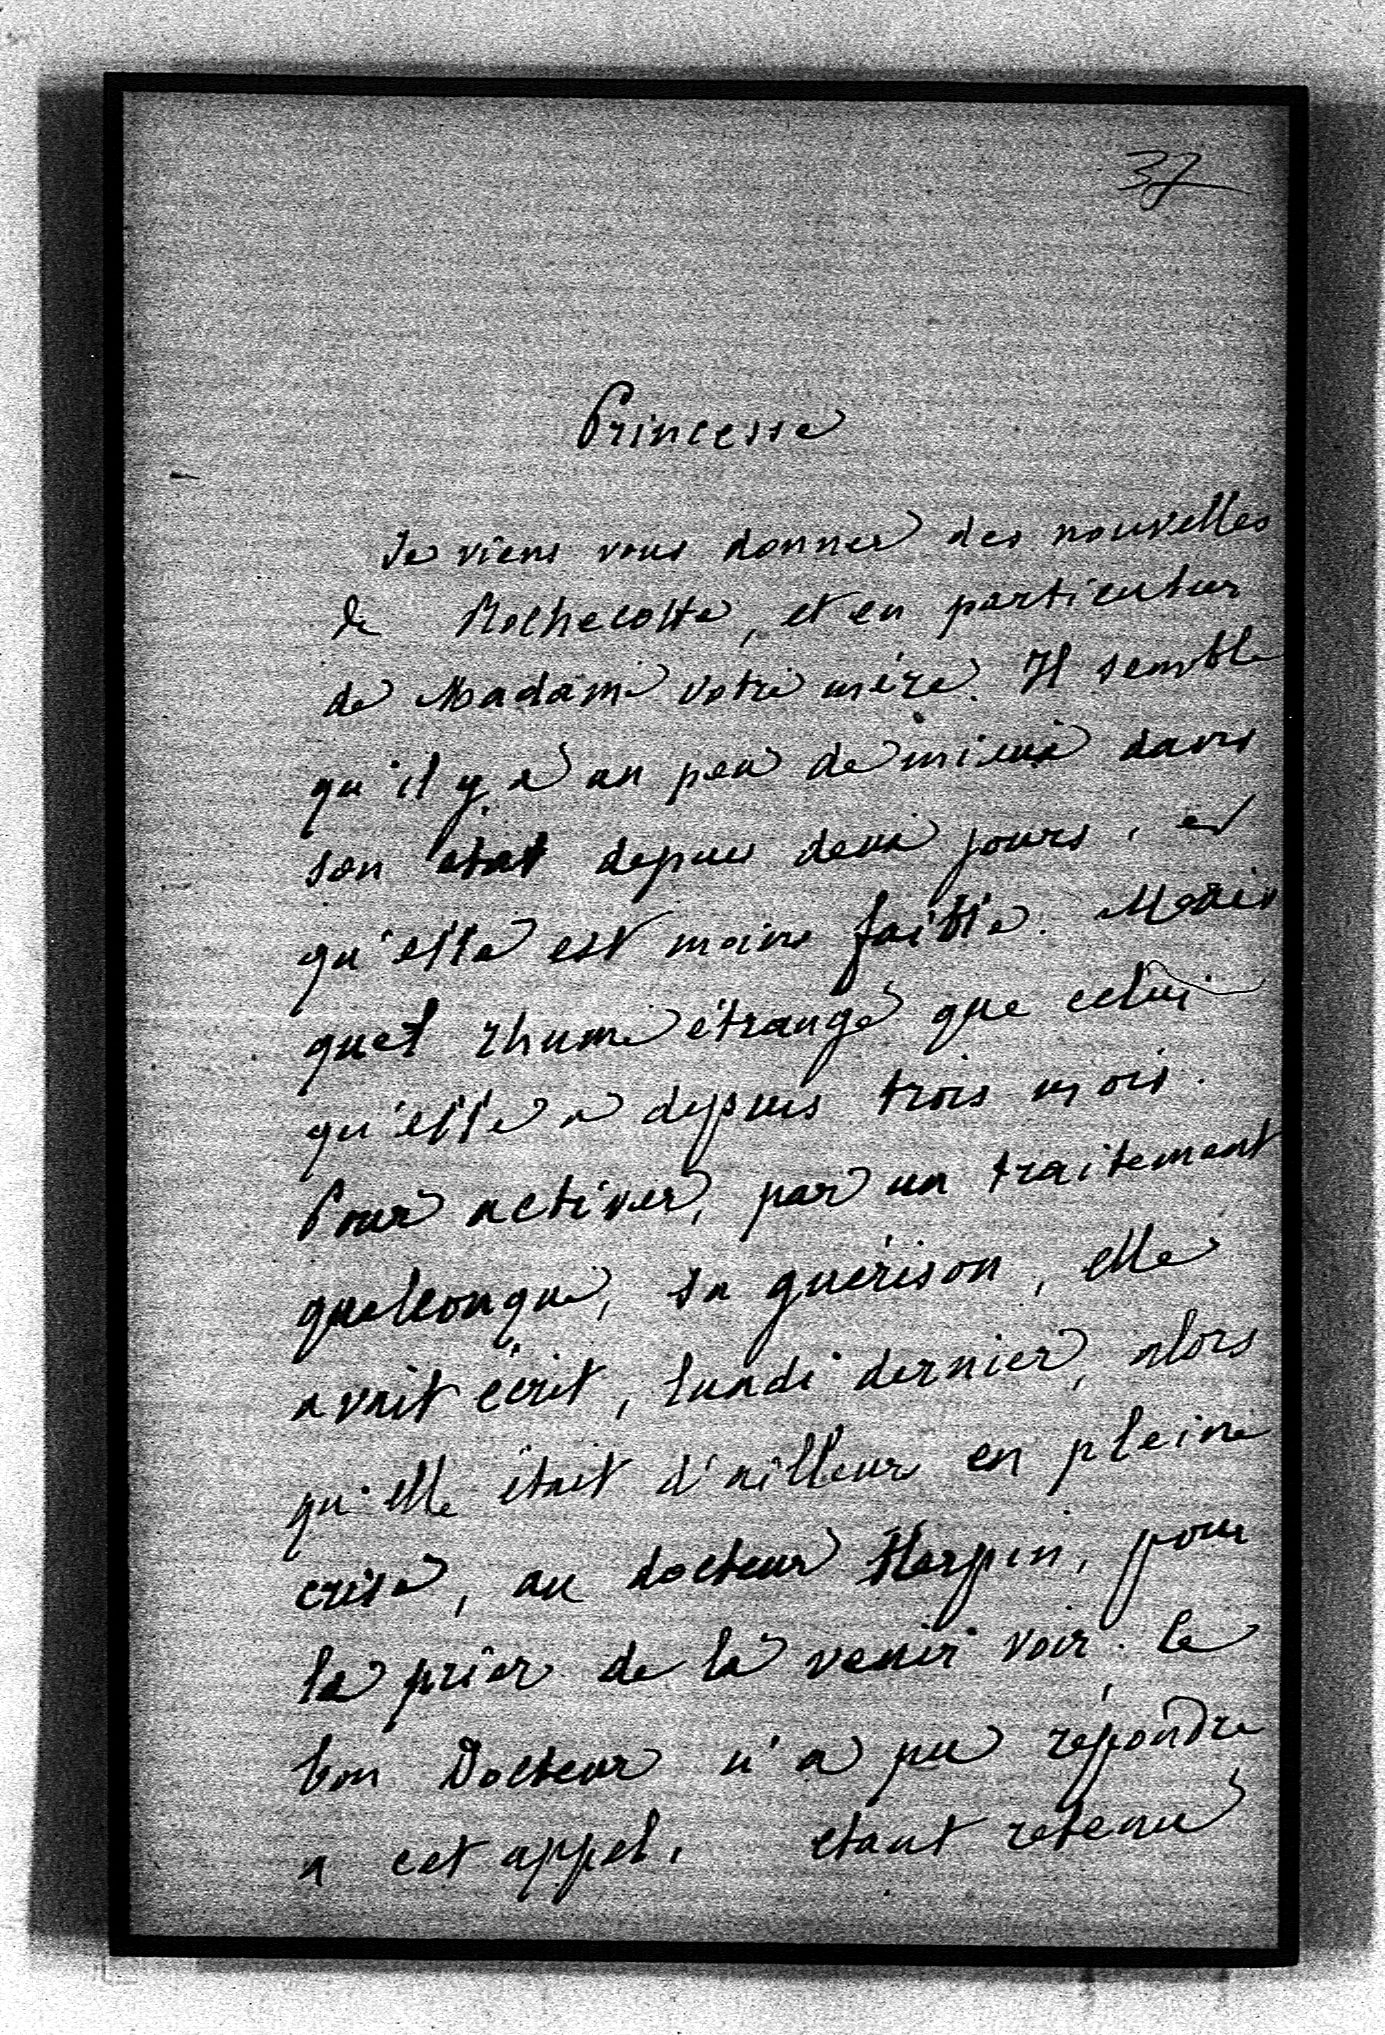 37
Princesse
Je viens vous donner des nouvelles
de Rochecotte, et en particulier
de Madame votre mère. Il semble
qu'il y a un peu de mieux dans
son état depuis deux jours, et
qu'elle est moins faible. Mais
quel rhume étrange que celui
qu'elle a depuis trois mois.
Pour activer, par un traitement
quelconque, sa guérison, elle
avait écrit, lundi dernier, alors
qu'elle était d'ailleurs en pleine
crise, au docteur Harpin, pour
le prier de la venir voir. Le
bon Docteur n'a pu répondre
a cet appel, étant retenu